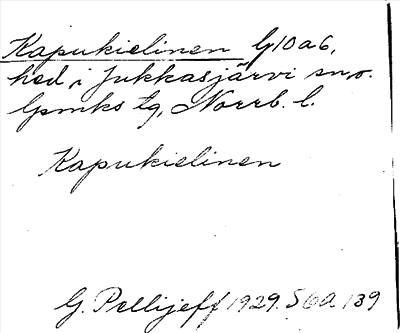 Kapukielinen G10a6,
hed i Jukkasjärvi sn o.
lpmks tg, Norrb. l.
Kapukielinen
G. Pellijeff 1929. S 60a 139